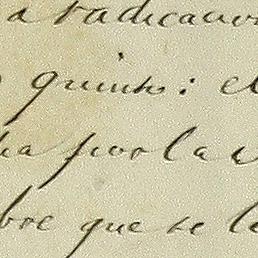 a radicacion
quinto: el
por la
bre que se le